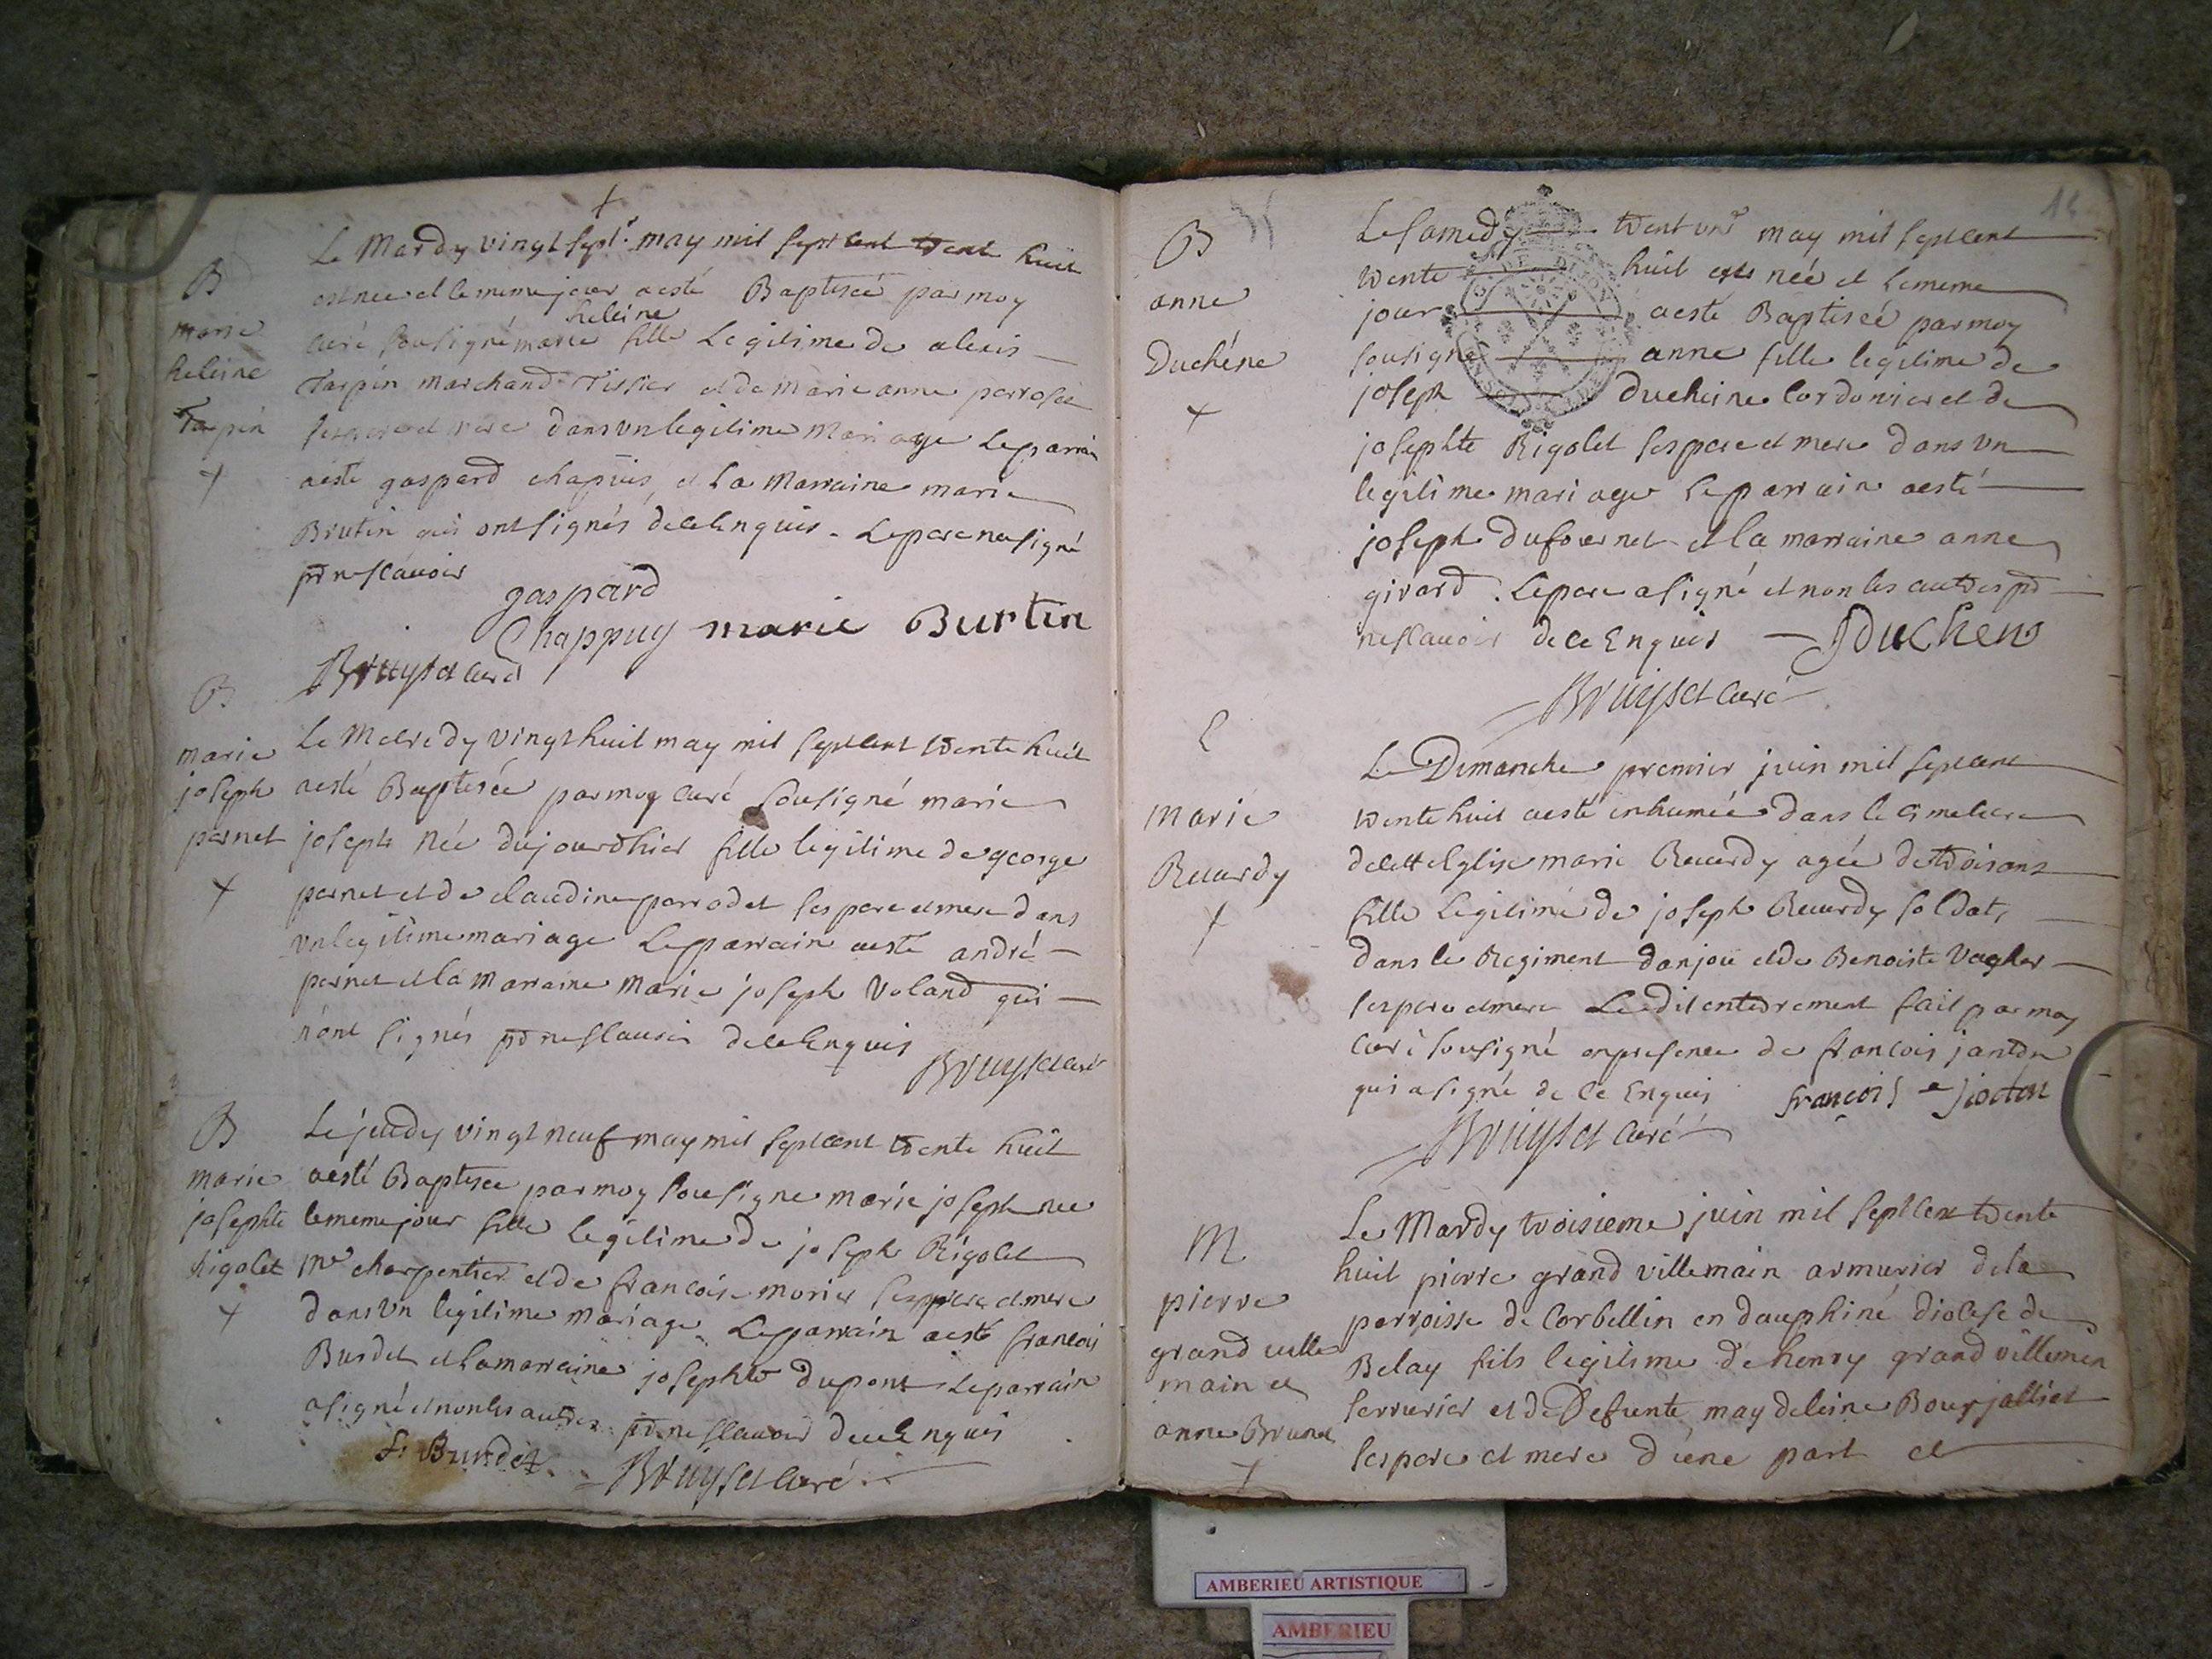 Le Mardy vingt sept.e may mil sept cent trente huit
est nee et le meme jour aesté Baptiseé par moy
heleine
curé sousigné marie fille Legitime de alexis
Tarpin marchand Tissier et de marie anne
ses pere et mere dans vn legitime mariage Le parrain
aesté gaspard chapuis et La Marraine marie
Brutin qui ont signés de ce Enquis. Le pere na signé
pr ne sçavoir
gaspard
Chappuy marie Burtin
Bruyset curé
B
marie
heleine
Tarpin
Le Mecredy vingt huit may mil sept cent trente huit
aesté Baptisée par moy curé sousigné marie
joseph née du jourdhier fille legitime de george
pernet et de claudine parrodet ses pere et mere dans
vn legitime mariage Le parrain aesté andré
pernet et la marraine marie joseph Voland qui
n'ont signés pr ne sçauoir de ce Enquis
Bruyset curé
B
marie
joseph
pernet
Le jeudy vingt neuf may mil sept cent trente huit
aesté Baptisee par moy sousigne marie joseph nee
le meme jour fille Legitime de joseph Rigolet
me charpentier et de francoise morier ses pere et mere
dans vn legitime mariage Le parrain aesté francois
Burdet et la marraine josephte dupont Le parrain
a signé et non les autres pr ne sçauoir de ce Enquis
f. Burdet
Bruyset curé
B
marie
josephte
Rigolet
14
Le samedy trent vne may mil sept cent
trente huit est née et le meme
jour aesté Baptiseé par moy
sousigné anne fille legitime de
joseph ducheine cordonier et de
josephte Rigolet ses pere et mere dans vn
legitime mariage le parrain aesté
joseph dufournet et la marraine anne
girard. le pere a signé et non les autres pr
ne sçauoir de ce Enquis J duchene
Bruyset curé
B
anne
Duchéne
Le Dimanche premier juin mil sept cent
trente huit aesté inhumée dans le cimetiere
de cette Eglise marie Recurdy ageé de trois ans
fille legitime de joseph Recurdy soldat
dans le Regiment danjou et de Benoiste
ses pere et mere Ledit enterrement fait par moy
curé sousigné en presence de francois
qui a signé de ce Enquis françois
Bruyset curé
marie
Recurdy
Le Mardy troisieme juin mil sept cent trente
huit pierre grand villemain armurier de la
parroisse de Corbellin en dauphiné diocese de
Belay fils legitime de henry grand villemin
serrurier et de Defunte maydeleine Bourjalliet
ses pere et mere d'une part et
M
pierre
grand ville
main et
anne Brunet
AMBERIEU ARTISTIQUE
AMBERIEU